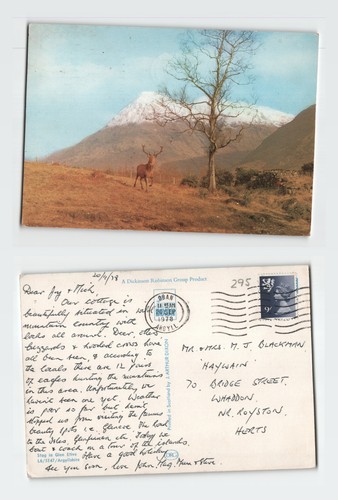 20/9/78
Dear Joy & Mick,
Our cottage is
beautifully situated in wild
mountain country with
lochs all around. Deer, otters
buzzards & hooded crows have
all been seen, & according to
the locals there are 12 pairs
of eagles hunting the mountains
in this area. Unfortunately we
haven't seen any yet. Weather
is just so fair but hasn't
stopped us from visiting the famous
beauty spots i.e. Glencoe, the Road
to the Isles, Glenfinnan etc. Today we
boat & coach on a tour of the islands.
Have a good holiday
See you soon, love John, Meg, Mum &
Stag in Glen Etive
Argyllshire
A Dickinson Robinson Group Product
Printed in
OBAN
1978
ARGYLL
295
9P
MR & MRS. M. J. BLACKMAN
'HAYWAIN'
70, BRIDGE STREET,
WHADDON,
NR. ROYSTON,
HERTS